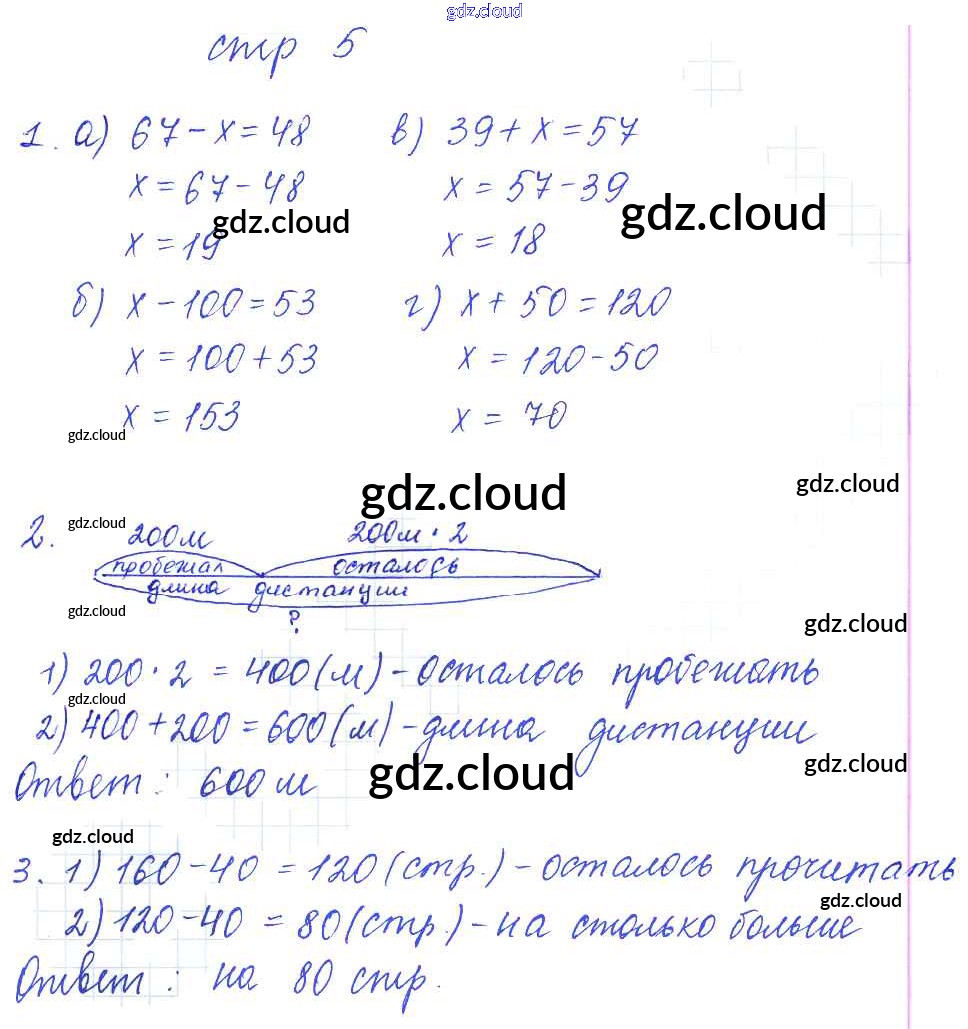 gdz.cloud
стр 5
1. а) 67 - x = 48 в) 39 + x = 57
x = 67 - 48 x = 57 - 39
gdz.cloud gdz.cloud
x = 19 x = 18
б) x - 100 = 53 г) x + 50 = 120
x = 100 + 53 x = 120 - 50
x = 153 x = 70
gdz.cloud
gdz.cloud gdz.cloud
gdz.cloud
2. 200 м 200 м · 2
пробежал осталось
длина дистанции
gdz.cloud
? gdz.cloud
1) 200 · 2 = 400 (м) - осталось пробежать
gdz.cloud
2) 400 + 200 = 600 (м) - длина дистанции
gdz.cloud gdz.cloud
Ответ: 600 м
gdz.cloud
3. 1) 160 - 40 = 120 (стр.) - осталось прочитать
gdz.cloud
2) 120 - 40 = 80 (стр.) - на столько больше
Ответ: на 80 стр.